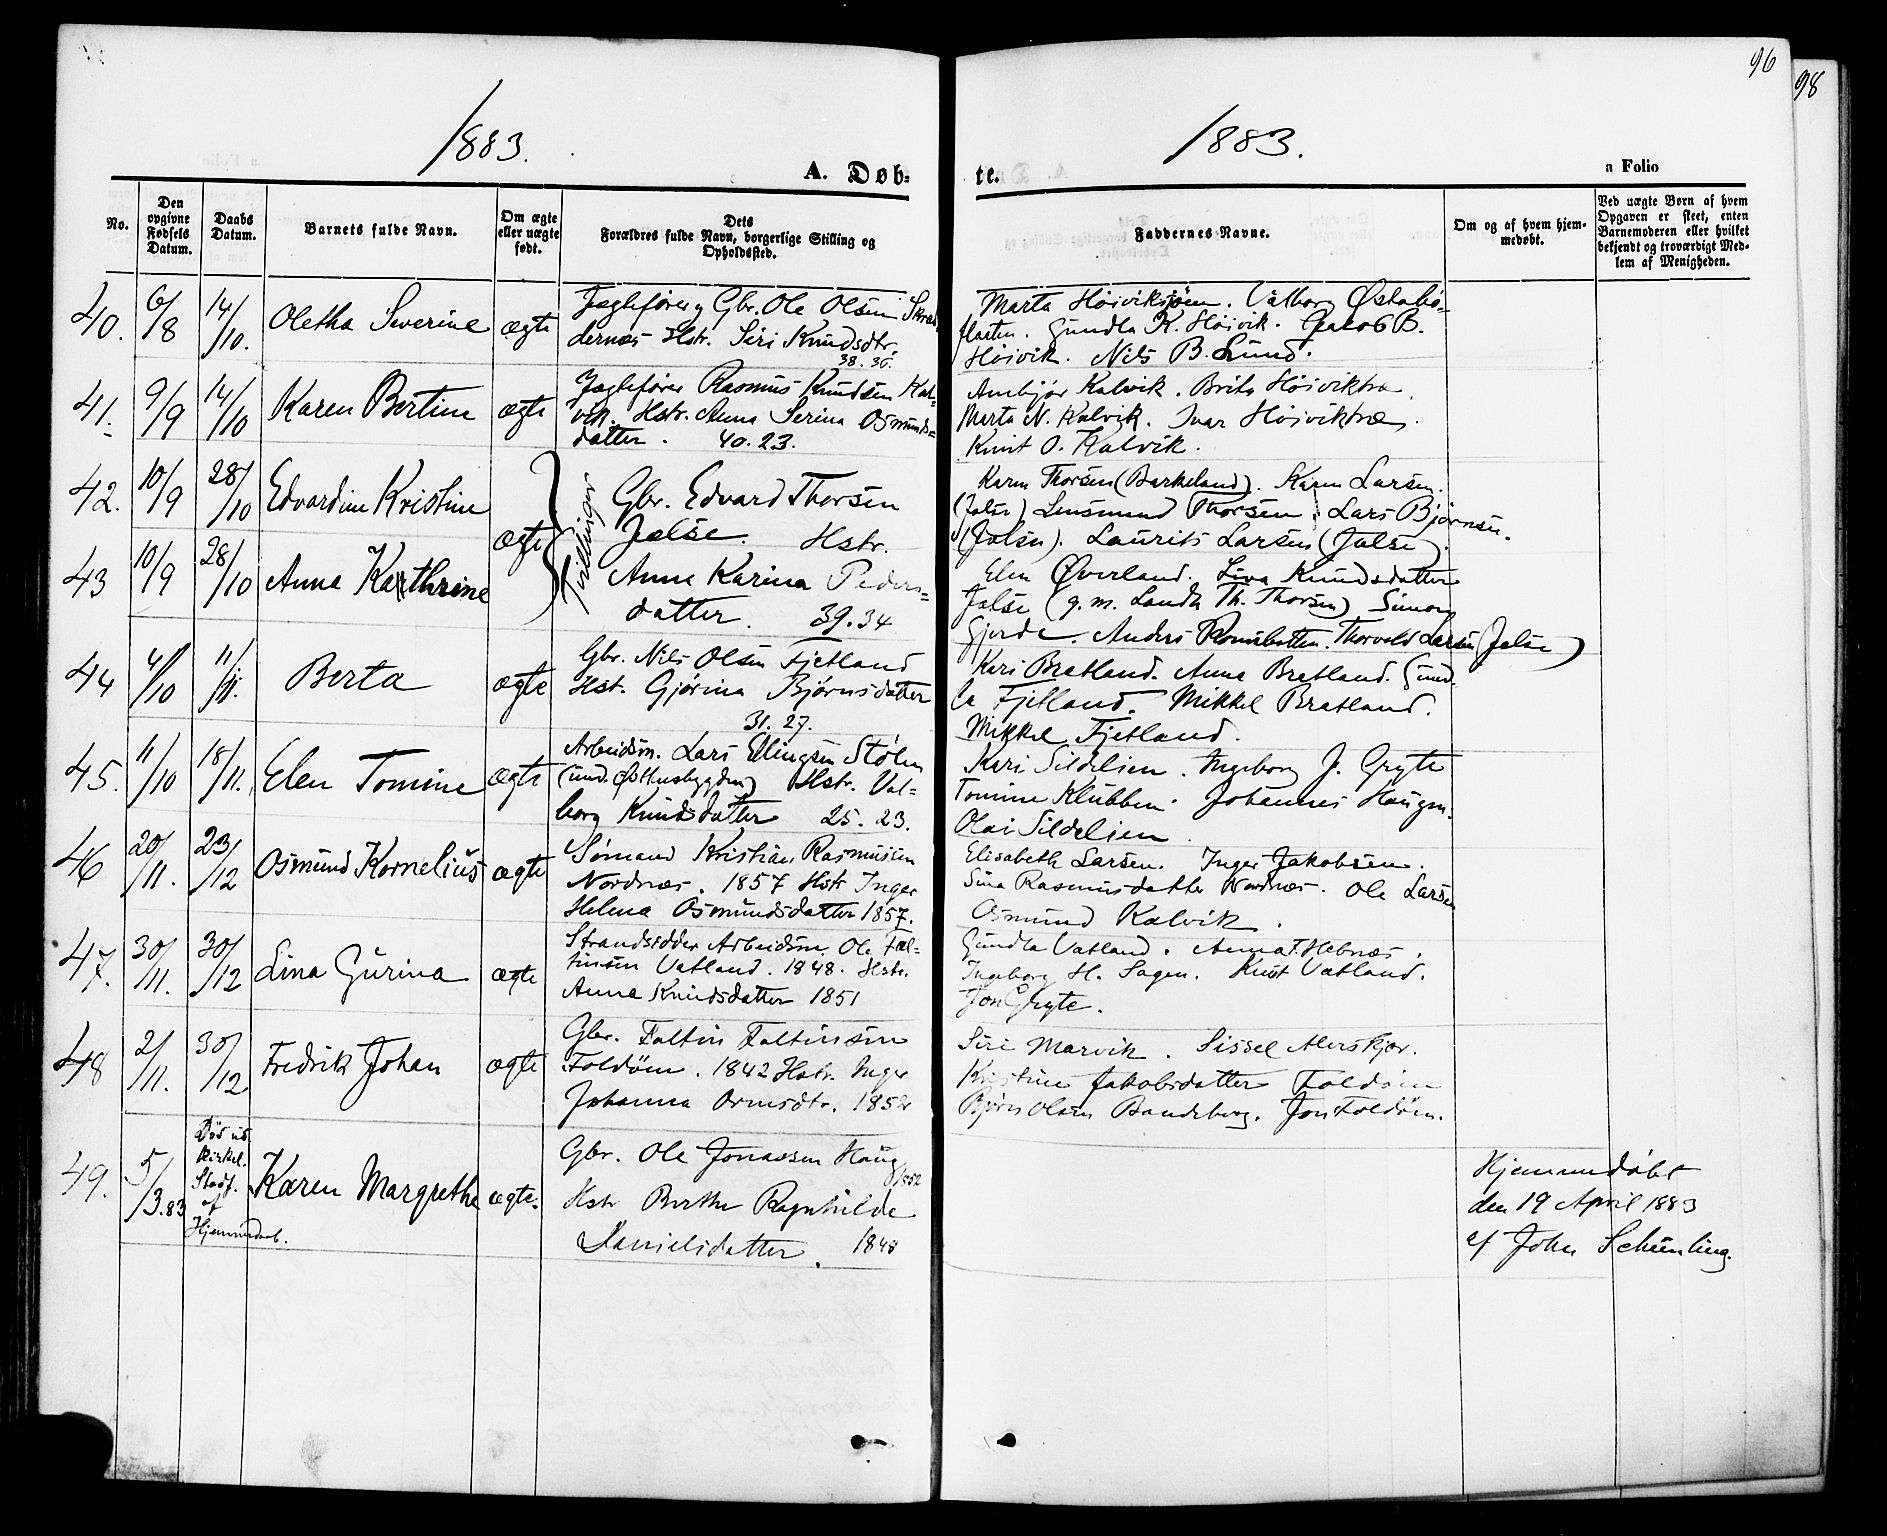 96
98
1883.
1883.
A. Døb-
te.
a Folio
No.
Den opgivne Fødsels Datum.
Daabs Datum.
Barnets fulde Navn.
Om ægte eller uægte født.
Dets
Forældres fulde Navn, borgerlige Stilling og Opholdssted.
Faddernes Navne.
Om og af hvem hjem-
medøbt.
Ved uægte Børn af hvem
Opgaven er skeet, enten
Barnemoderen eller hvilket
bekjendt og troværdigt Med-
lem af Menigheden.
40. 6/8 14/10. Oletha Severine ægte
Jagtefører og Gbr. Ole Olsen
dernæs Hstr. Siri Knudsdtr.
38. 36.
Marta Høiviksjøen. Valborg Østabø-
Gundla K. Høivik. Jakob B.
Høivik. Nils B. Lund.
41. 9/9 14/10 Karen Bertine ægte
Jagtefører Rasmus Knudsen Kal-
vik. Hstr. Anna Serina Osmunds-
datter. 40. 23.
Kalvik. Brita Høiviktræ.
Marta N. Kalvik. Ivar Høiviktræ.
Knut O. Kalvik.
42. 10/9 28/10 Edvardine Kristine
43 10/9 28/10 Anna Kathrine
ægte
Tvillinger
Gbr. Edvard Thorsen
Jælse. Hstr.
Anna Karina Peders-
datter. 39. 34
Karen Thorsen (Barkeland). Karen Larsen.
(Jalse) Thorsen. Lars Bjørnsen.
(Jalse). Laurits Larsen (Jalse).
Elen Øverland. Siva Knudsdatter
Jalse (g. m. Th. Thorsen) Simon
Gjerde. Anders Thorvald Larsen (Jalse)
44 4/10 11/11. Berta ægte
Gbr. Nils Olsen Fjetland
Hst. Gjørina Bjørnsdatter
31. 27.
Kari Bratland. Anna Bratland. Gund-
la Fjetland. Mikkel Bratland.
Mikkel Fjetland.
45. 11/10 18/11. Elen Tomine ægte
Arbeidsm. Lars Ellingsen Støle
(und. Østhusbygden) Hstr. Val-
borg Knudsdatter 25. 23.
Kari Sildelien. Ingeborg J. Gryte
Tomine Klubben. Johannes Haugen.
Olai Sildelien.
46 20/11. 23/12 Osmund Kornelius ægte
Sømand Kristian Rasmussen
Nordnæs. 1857 Hstr Inger
Helena Osmundsdatter 1857.
Elisabeth Larsen. Inger Jakobsen.
Sina Rasmusdatter Nordnæs. Ole Larsen
Osmund Kalvik.
47. 30/11. 30/12 Lina Gurina ægte
Strandsidder Arbeidsm. Ole Fal-
tinsen Vatland. 1848. Hstr.
Anna Knudsdatter 1851
Gundla Vatland. Anna T. Hebnæs.
Ingeborg H. Sagen. Knut Vatland.
Jon Gryte.
48 2/11. 30/12 Fredrik Johan ægte
Gbr. Faltin Faltinsen
Foldøen. 1842 Hstr. Inger
Johanna Ormsdtr. 1852
Siri Marvik. Sissel Alverskjær.
Kristine Jakobsdatter Foldøen
Bjørn Olsen Bandeberg. Jon Foldøen.
49. 5/3.83 Død ud.
kirkel.
Stadf.
af
Hjemmedaab.
Karen Margrethe ægte.
Gbr. Ole Jonassen Haug
1852
Hstr Berthe Ragnhilde
Danielsdatter. 1848
Hjemmedøbt
den 19 April 1883
af John Schienling.